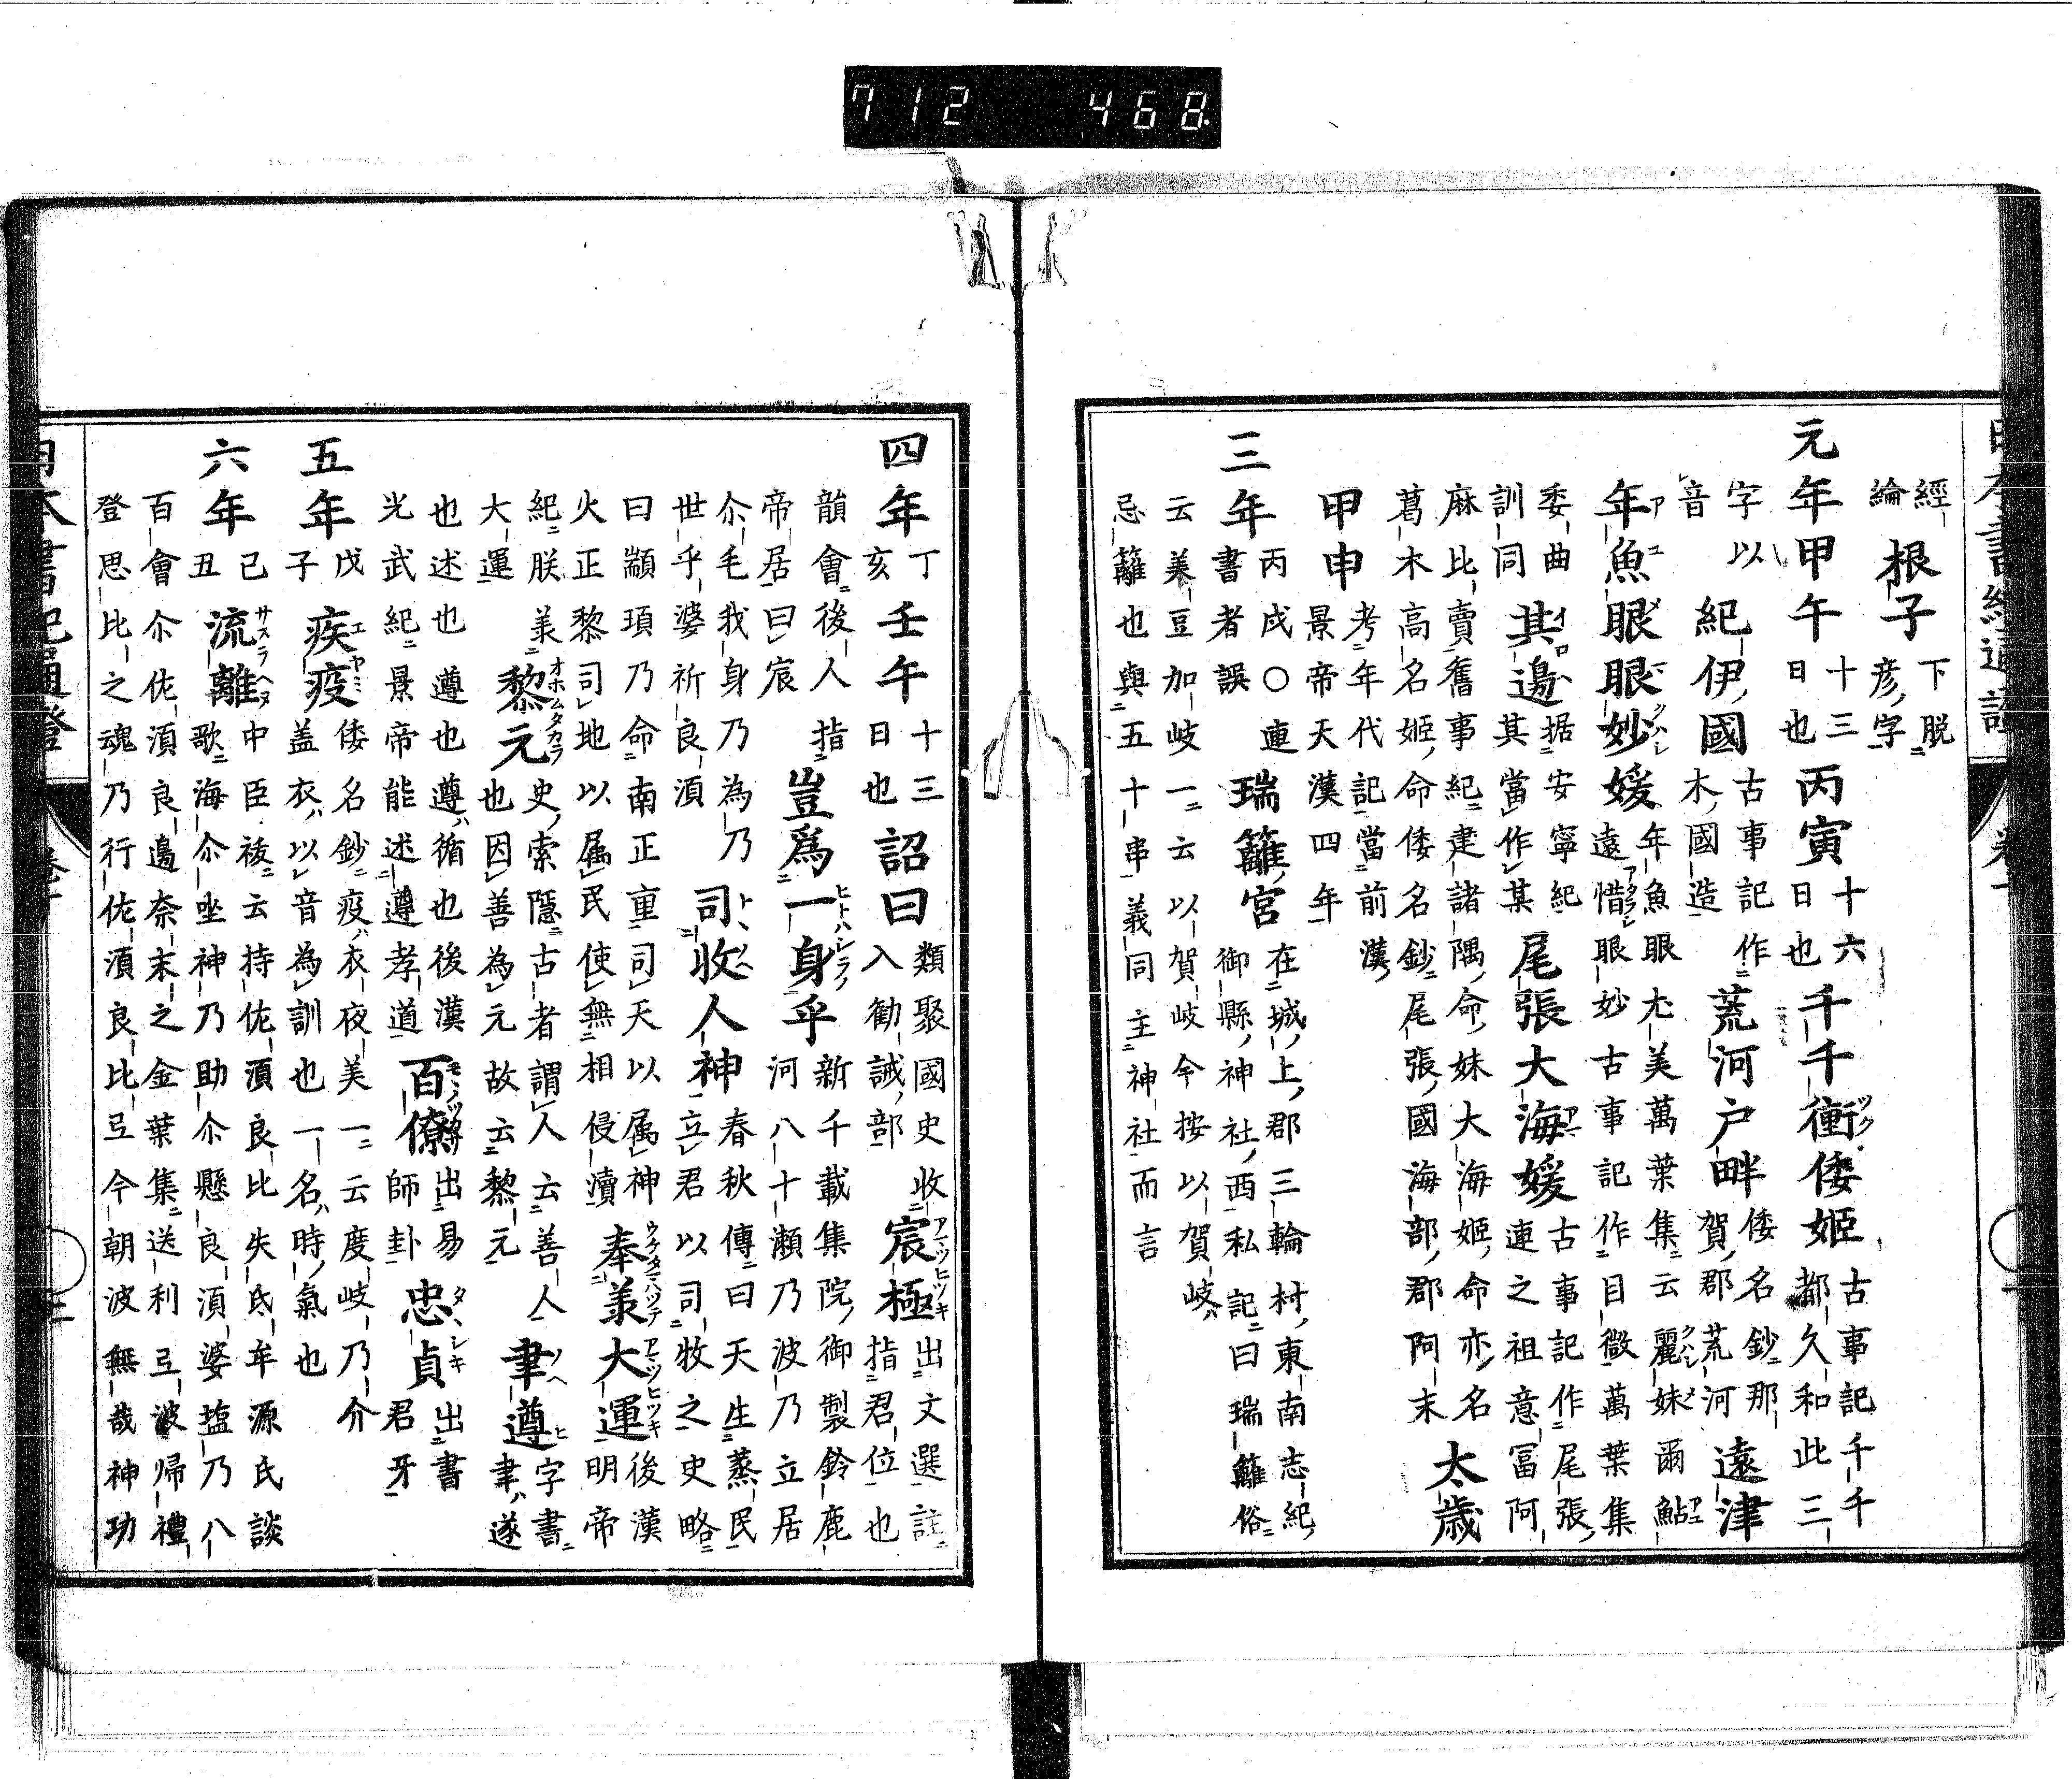 712 468
經綸 根子 下脱彦字
元年甲午 十三日也 丙寅 十六日也 千千衝倭姬 古事記千千都久和此三
字以音 紀伊國 古事記作木國造 荒河戸畔 倭名鈔那賀郡荒河 遠津
年魚眼眼妙媛 年魚眼尤美萬葉集云麗妹爾鮎遠惜眼妙古事記作目微萬葉集
委曲訓同 其邊 据安寧紀其當作某 尾張大海媛 古事記作尾張連之祖意冨阿
麻比賣舊事紀建諸隅命妹大海姬命亦名葛木高名姬命倭名鈔尾張國海部郡阿末 太歲
甲申 考年代記當前漢景帝天漢四年
三年 丙戌〇連書者誤 瑞籬宮 在城上郡三輪村東南志紀御縣神社西私記曰瑞籬俗
云美豆加岐一云以賀岐今按以賀岐
忌籬也與五十串義同主神社而言
四年 丁亥 壬午 十三日也 詔曰 類聚國史收入勸誡部 宸極 出文選註指君位也
韻會後人指帝居曰宸 豈爲一身乎 新千載集院御製鈴鹿河八十瀬乃波乃立居
尒毛我身乃為乃世乎婆祈良湏 司牧人神 春秋傳曰天生蒸民立君以司牧之史略
曰顓頊乃命南正重司天以属神火正黎司地以属民使無相侵瀆 奉羕大運 後漢明帝
紀朕羕大運 黎元 史索隱古者謂人云善人也因善為元故云黎元 聿遵 字書聿遂
也述也遵也遵循也後漢光武紀景帝能述遵孝道 百僚 出易師卦 忠貞 出書君牙
五年 戊子 疾疫 倭名鈔疫衣夜美一云度岐乃介盖衣以音為訓也一名時氣也
六年 己丑 流離 中臣祓云持佐湏良比失氐牟源氏談歌海尒坐神乃助尒懸良湏婆塩乃八
百會尒佐湏良邊奈末之金葉集送利弖波帰禮
登思比之魂乃行佐湏良比弖今朝波無哉神功